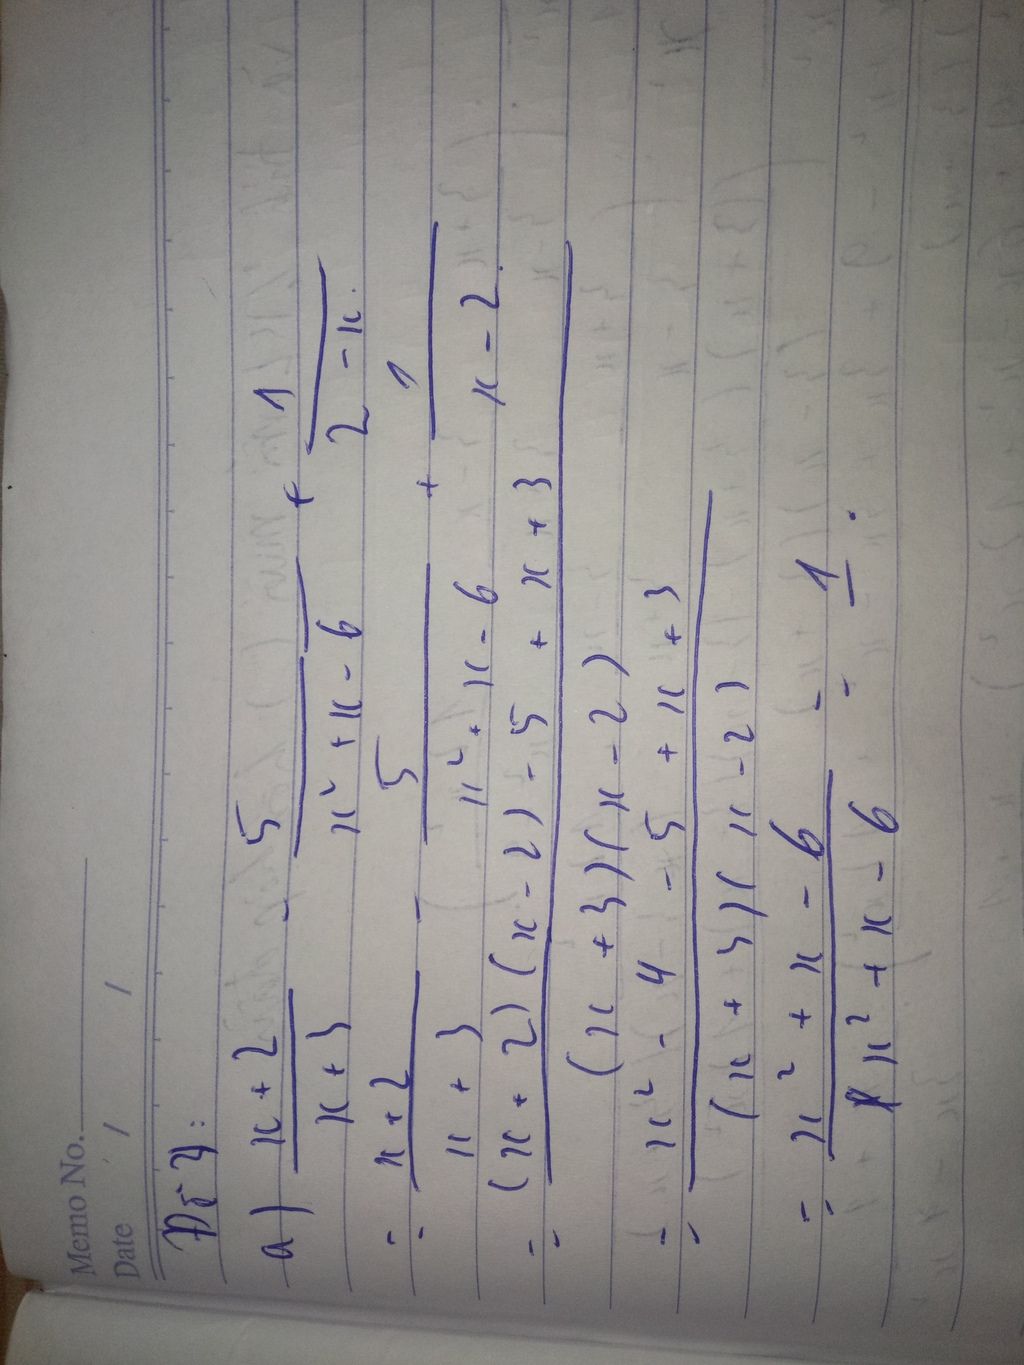 Memo No.
Date / /
Đề 4:
a) x+2/x+3 - 5/x²+x-6 + 1/2-x.
= x+2/x+3 - 5/x²+x-6 + 1/x-2.
= (x+2)(x-2)-5+x+3/(x+3)(x-2)
= x²-4-5+x+3/(x+3)(x-2)
= x²+x-6/x²+x-6 = 1.